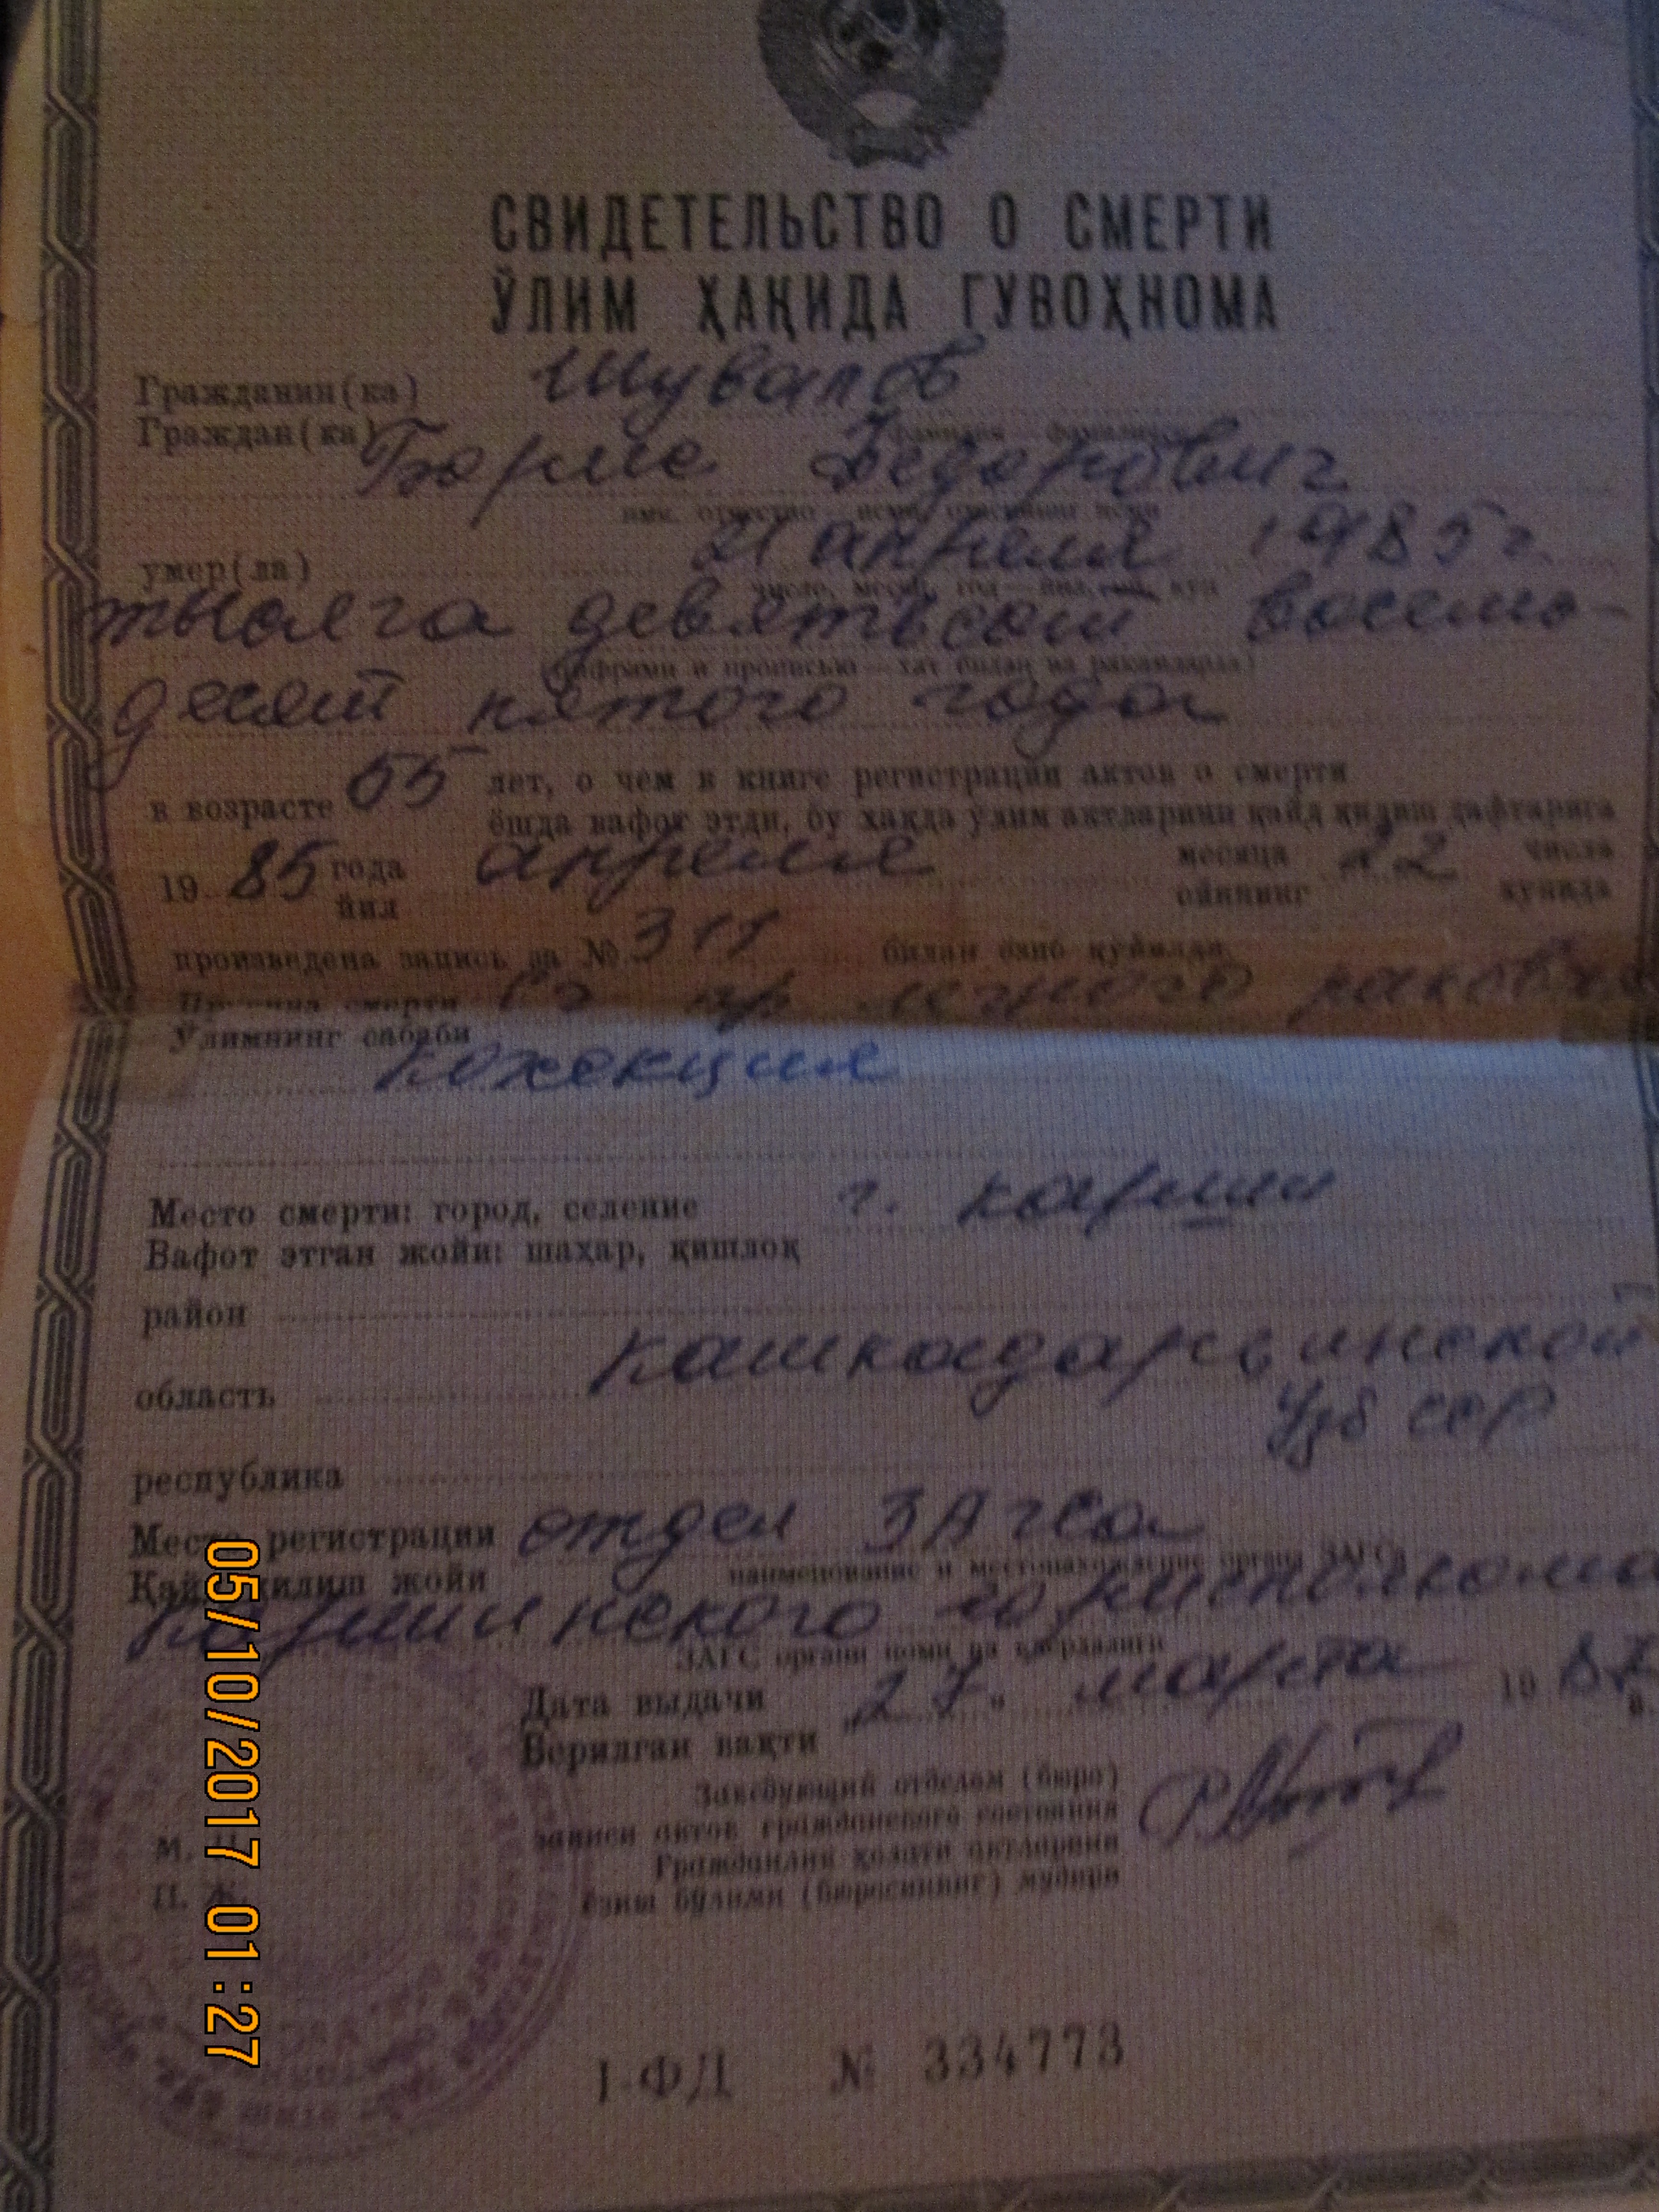 СВИДЕТЕЛЬСТВО О СМЕРТИ
ЎЛИМ ҲАҚИДА ГУВОҲНОМА
Гражданин(ка) Шувалов
Граждан(ка)
фамилия — фамилияси
Борис Федорович
имя, отчество — исми, отасининг исми
умер(ла) 21 апреля 1985 г.
число, месяц, год — йил, ой, кун
тысяча девятьсот восемь-
(цифрами и прописью — хат билан ва рақамларда)
десят пятого года
в возрасте 55 лет, о чем в книге регистрации актов о смерти
ёшда вафот этди, бу ҳақда ўлим актларини қайд қилиш дафтарига
19 85 года апреля месяца 22 числа
йил ойининг кунида
произведена запись за № 311 билан ёзиб қўйилди
Причина смерти
Ўлимнинг сабаби
Место смерти: город, селение г. Карши
Вафот этган жойи: шаҳар, қишлоқ
район
область Кашкадарьинской
Узб ССР
республика
Место регистрации отдел ЗАГСа
наименование и местонахождение органа ЗАГСа
Қайд қилиш жойи
Каршинского горисполкома
ЗАГС органи номи ва
Дата выдачи „27" марта 19 87
Берилган вақти
Заведующий отделом (бюро)
записи актов гражданского состояния
Гражданлик ҳолати актларини
ёзиш бўлими (бюросининг) мудири
М. П.
П. Ж.
I-ФД № 334773
05/10/2017 01:27